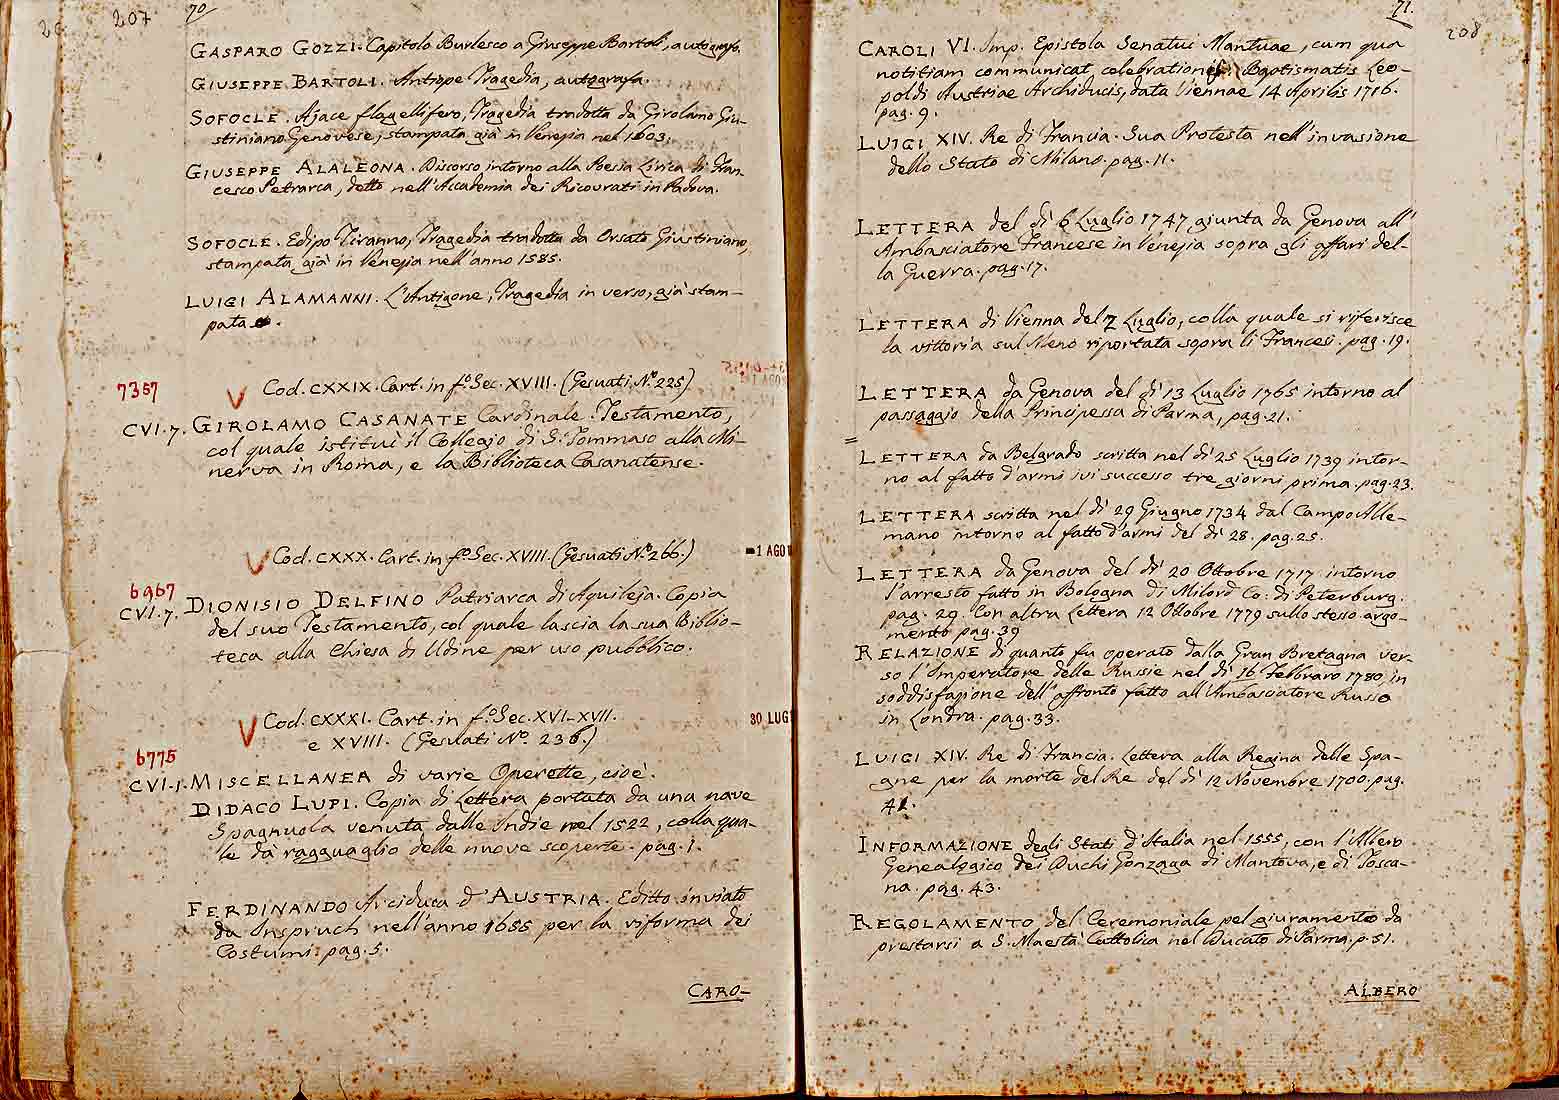 207
70
GASPARO GOZZI. Capitolo Burlesco a Giuseppe Bartoli, autografo.
GIUSEPPE BARTOLI. Antiope Tragedia, autografa.
SOFOCLE. Ajace flagellifero, Tragedia tradotta da Girolamo Giu-
stiniano Genovese, stampata già in Venezia nel 1603.
GIUSEPPE ALALEONA. Discorso intorno alla Poesia Lirica di Fran-
cesco Petrarca, detto nell'Accademia dei Ricovrati in Padova.
SOFOCLE. Edipo Tiranno, Tragedia tradotta da Orsato Giustiniano,
stampata già in Venezia nell'anno 1585.
LUIGI ALAMANNI. L'Antigone, Tragedia in verso, già stam-
pata.
7357
Cod. CXXIX. Cart. in fo. Sec. XVIII. (Gesuati No. 225)
CVI.7. GIROLAMO CASANATE Cardinale. Testamento,
col quale istituì il Collegio di S. Tommaso alla Mi-
nerva in Roma, e la Biblioteca Casanatense.
Cod. CXXX. Cart. in fo. Sec. XVIII. (Gesuati No. 266.)
-1 AGO
6967
CVI.7. DIONISIO DELFINO Patriarca di Aquileja. Copia
del suo Testamento, col quale lascia la sua Biblio-
teca alla Chiesa di Udine per uso pubblico.
Cod. CXXXI. Cart. in fo. Sec. XVI-XVII.
30 LUG
e XVIII. (Gesuati No. 236.)
6775
CVI.1. MISCELLANEA di varie Operette, cioè.
DIDACO LUPI. Copia di Lettera portata da una nave
Spagnuola venuta dalle Indie nel 1522, colla qua-
le dà ragguaglio delle nuove scoperte. pag. 1.
FERDINANDO Arciduca d'AUSTRIA. Editto inviato
da Inspruch nell'anno 1655 per la riforma dei
Costumi. pag. 5.
CARO-
71.
208
CAROLI VI. Imp. Epistola Senatui Mantuae, cum qua
notitiam communicat, celebrationis Baptismatis Leo-
poldi Austriae Archiducis, data Viennae 14 Aprilis 1716.
pag. 9.
LUIGI XIV. Re di Francia. Sua Protesta nell'invasione
dello Stato di Milano. pag. 11.
LETTERA del dì 6 Luglio 1747, giunta da Genova all'
Ambasciatore Francese in Venezia sopra gli affari del-
la Guerra. pag. 17.
LETTERA di Vienna del 7 Luglio, colla quale si riferisce
la vittoria sul Meno riportata sopra li Francesi. pag. 19.
LETTERA da Genova del dì 13 Luglio 1765 intorno al
passaggio della Principessa di Parma, pag. 21.
=
LETTERA da Belgrado scritta nel dì 25 Luglio 1739 intor-
no al fatto d'armi ivi successo tre giorni prima. pag. 23.
LETTERA scritta nel dì 29 Giugno 1734 dal Campo Alle-
mano intorno al fatto d'armi del dì 28. pag. 25.
LETTERA da Genova del dì 20 Ottobre 1717 intorno
l'arresto fatto in Bologna di Milord Co: di Peterburg.
pag. 29. Con altra Lettera 12 Ottobre 1779 sullo stesso argo-
mento pag. 39
RELAZIONE di quanto fu operato dalla Gran Bretagna ver-
so l'Imperatore delle Russie nel dì 16 Febbraro 1780, in
soddisfazione dell'affronto fatto all'Ambasciatore Russo
in Londra. pag. 33.
LUIGI XIV. Re di Francia. Lettera alla Regina delle Spa-
gne per la morte del Re del dì 12 Novembre 1700. pag.
41.
INFORMAZIONE degli Stati d'Italia nel 1555, con l'Albero
Genealogico dei Duchi Gonzaga di Mantova, e di Tosca-
na. pag. 43.
REGOLAMENTO del Ceremoniale pel giuramento da
prestarsi a S. Maestà Cattolica nel Ducato di Parma. p. 51.
ALBERO